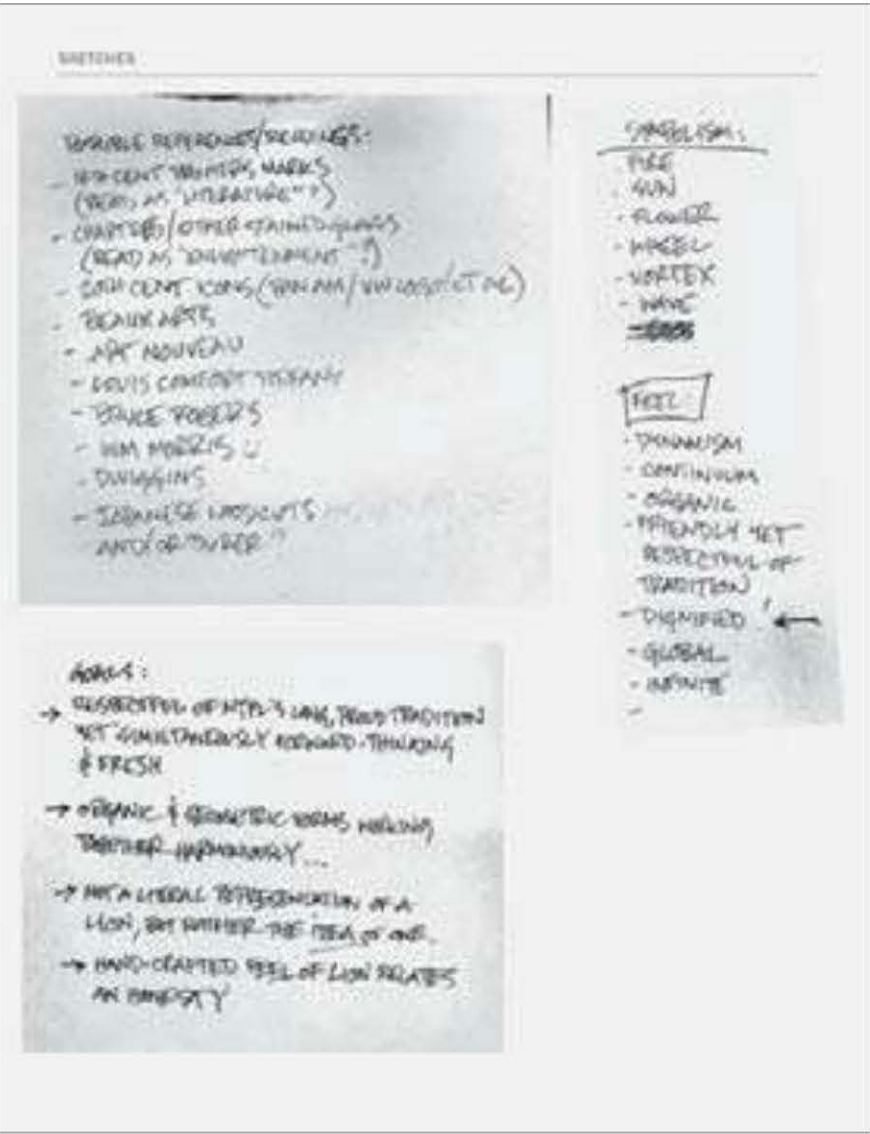 SKETCHES
POSSIBLE REFERENCES/READINGS:
- CENT PRINTERS MARKS
(READ AS "LITERATURE"?)
- /OTHER STAINED GLASS
(READ AS "ENLIGHTENMENT"?)
- 20TH CENT ICONS (PAN AM/VW LOGO/ET AL)
- BEAUX ARTS
- ART NOUVEAU
- LOUIS COMFORT TIFFANY
- BRUCE ROGERS
- WM MORRIS
- DWIGGINS
- JAPANESE WOODCUTS
AND/OR DURER?
SYMBOLISM:
- FIRE
- SUN
- FLOWER
- WHEEL
- VORTEX
- WAVE
FEEL
- DYNAMISM
- CONTINUUM
- ORGANIC
- FRIENDLY YET
RESPECTFUL OF
TRADITION
- DIGNIFIED! ←
- GLOBAL
- INFINITE
-
GOALS:
→ RESPECTFUL OF NYPL'S LONG, PROUD TRADITION
YET SIMULTANEOUSLY FORWARD-THINKING
& FRESH
→ ORGANIC & GEOMETRIC FORMS WORKING
TOGETHER HARMONIOUSLY...
→ NOT A LITERAL REPRESENTATION OF A
LION, BUT RATHER THE IDEA OF ONE.
→ HAND-CRAFTED FEEL OF LION RELATES
AN HONESTY